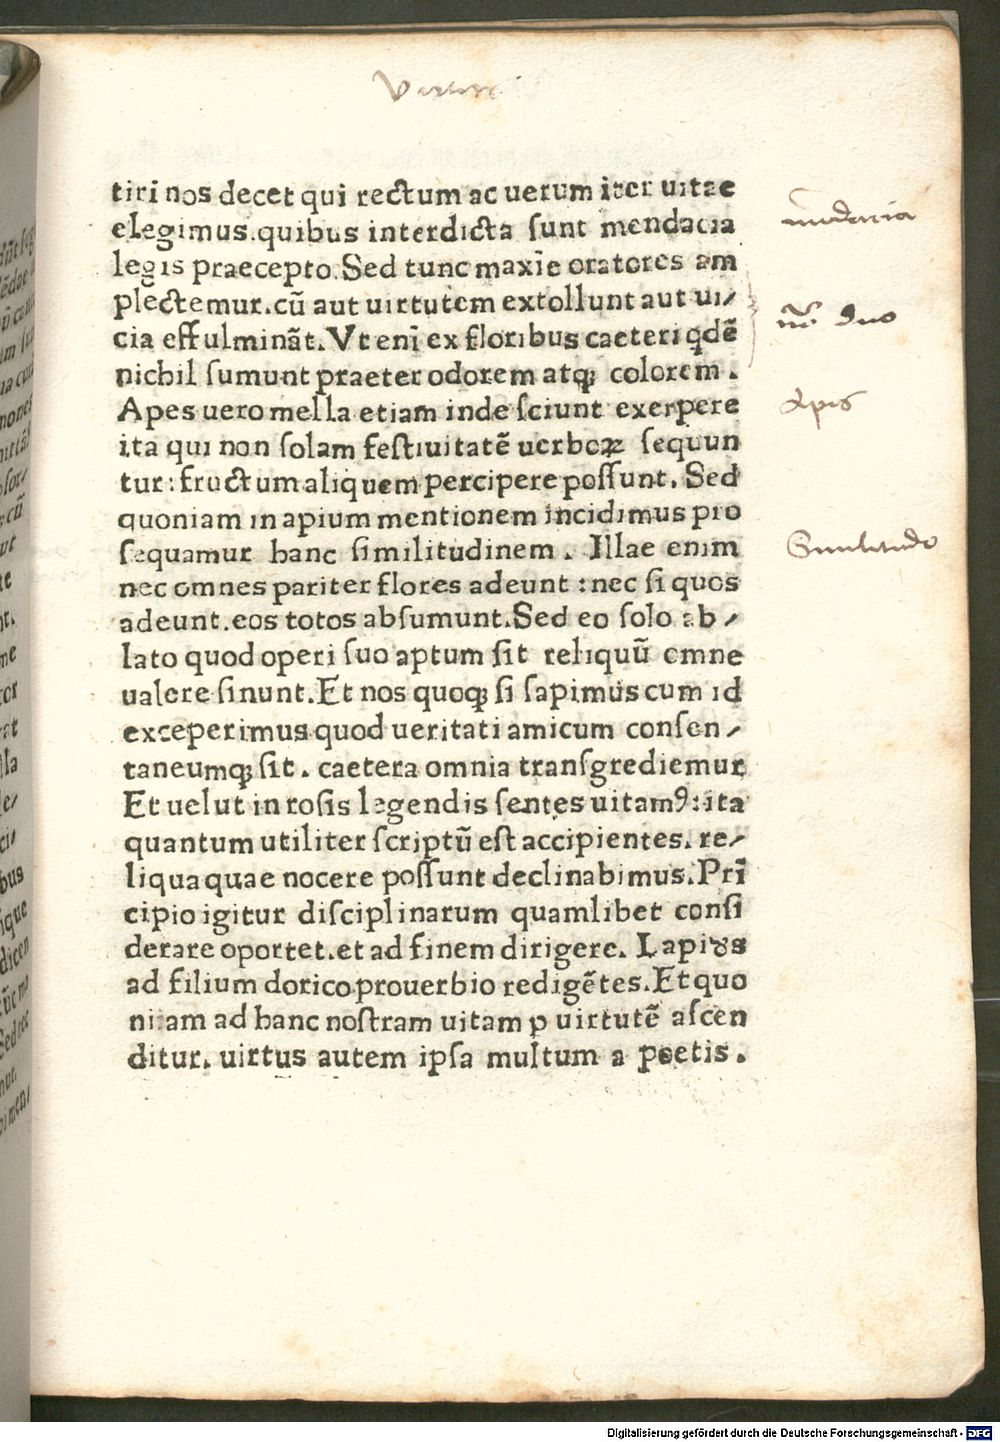 tiri nos decet qui rectum ac uerum iter uitae
elegimus.quibus interdicta sunt mendacia
legis praecepto.Sed tunc maxīe oratores am
plectemur.cū aut uirtutem extollunt aut ui/
cia effulmināt.Vt enī ex floribus caeteri qdē
nichil sumunt praeter odorem atqꝫ colorem.
Apes uero mella etiam inde sciunt exerpere
ita qui non solam festiuitatē uerboꝝ sequun
tur:fructum aliquem percipere possunt.Sed
quoniam in apium mentionem incidimus pro
sequamur hanc similitudinem. Illae enim
nec omnes pariter flores adeunt:nec si quos
adeunt.eos totos absumunt.Sed eo solo ab/
lato quod operi suo aptum sit reliquū omne
ualere sinunt.Et nos quoqꝫ si sapimus cum id
exceperimus quod ueritati amicum consen/
taneumqꝫ sit. caetera omnia transgrediemur
Et uelut in rosis legendis sentes uitamꝰ:ita
quantum utiliter scriptū est accipientes.re/
liqua quae nocere possunt declinabimus.Prī
cipio igitur disciplinarum quamlibet consi
derare oportet.et ad finem dirigere. Lapides
ad filium dorico prouerbio redigētes.Et quo
niam ad hanc nostram uitam ꝑ uirtutē ascen
ditur. uirtus autem ipsa multum a poetis.
mendacia
duo
Apis
Similitudo
Digitalisierung gefördert durch die Deutsche Forschungsgemeinschaft - DFG